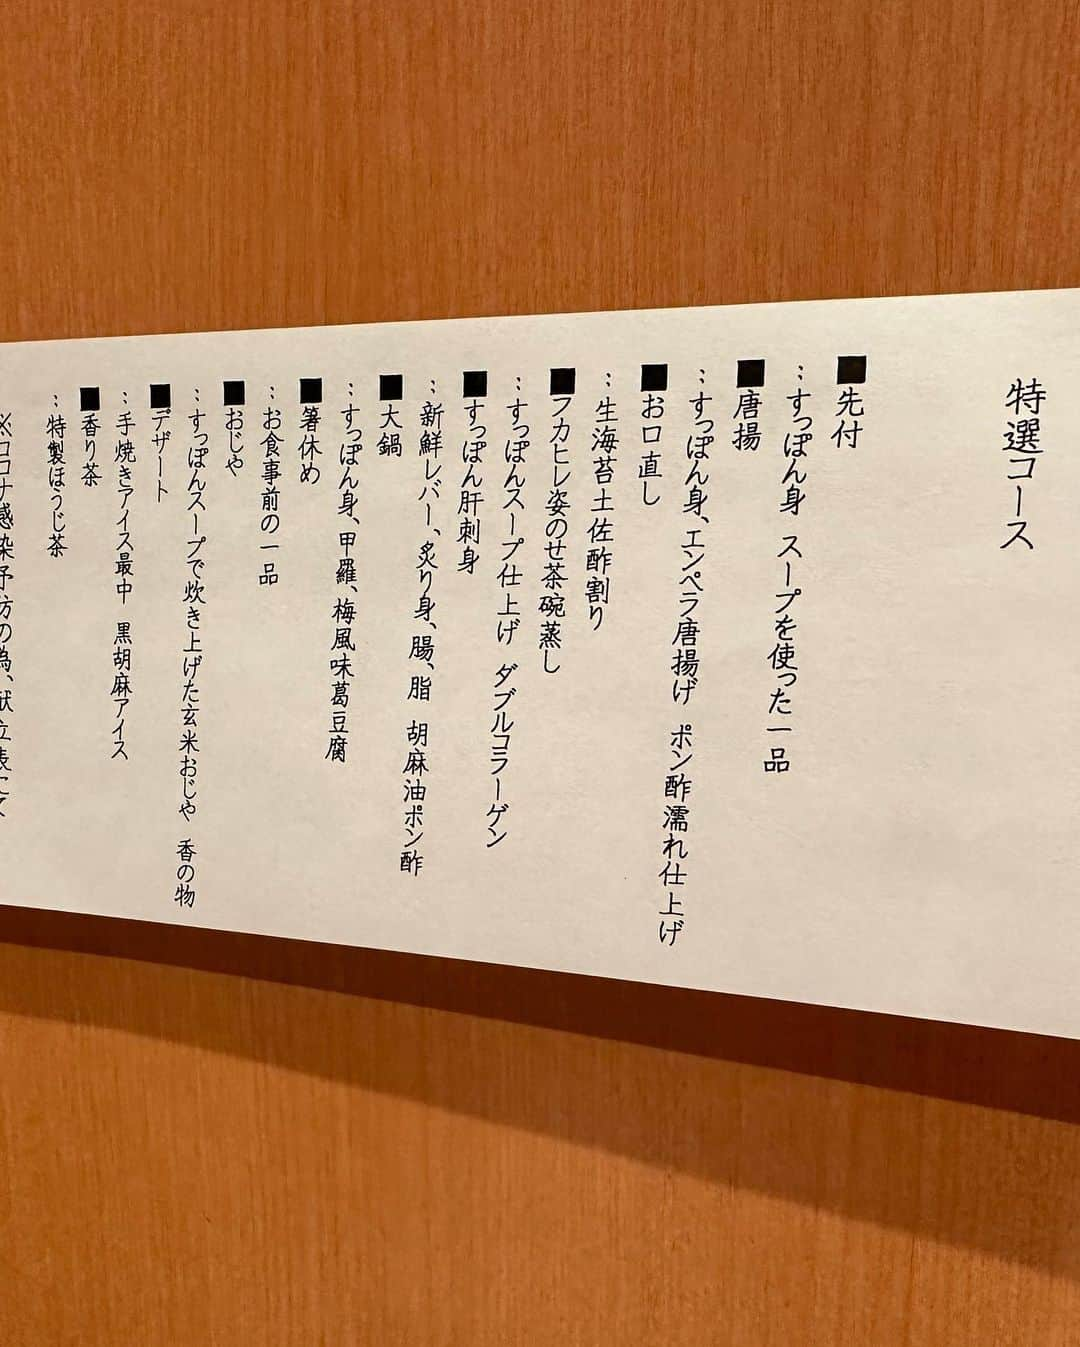 特選コース
■先付
：すっぽん身　スープを使った一品
■唐揚
：すっぽん身、エンペラ唐揚げ　ポン酢濡れ仕上げ
■お口直し
：生海苔土佐酢割り
■フカヒレ姿のせ茶碗蒸し
：すっぽんスープ仕上げ　ダブルコラーゲン
■すっぽん肝刺身
：新鮮レバー、炙り身、腸、脂　胡麻油ポン酢
■大鍋
：すっぽん身、甲羅、梅風味葛豆腐
■箸休め
：お食事前の一品
■おじや
：すっぽんスープで炊き上げた玄米おじや　香の物
■デザート
：手焼きアイス最中　黒胡麻アイス
■香り茶
：特製ほうじ茶
※コロナ感染予防の為、献立表にて